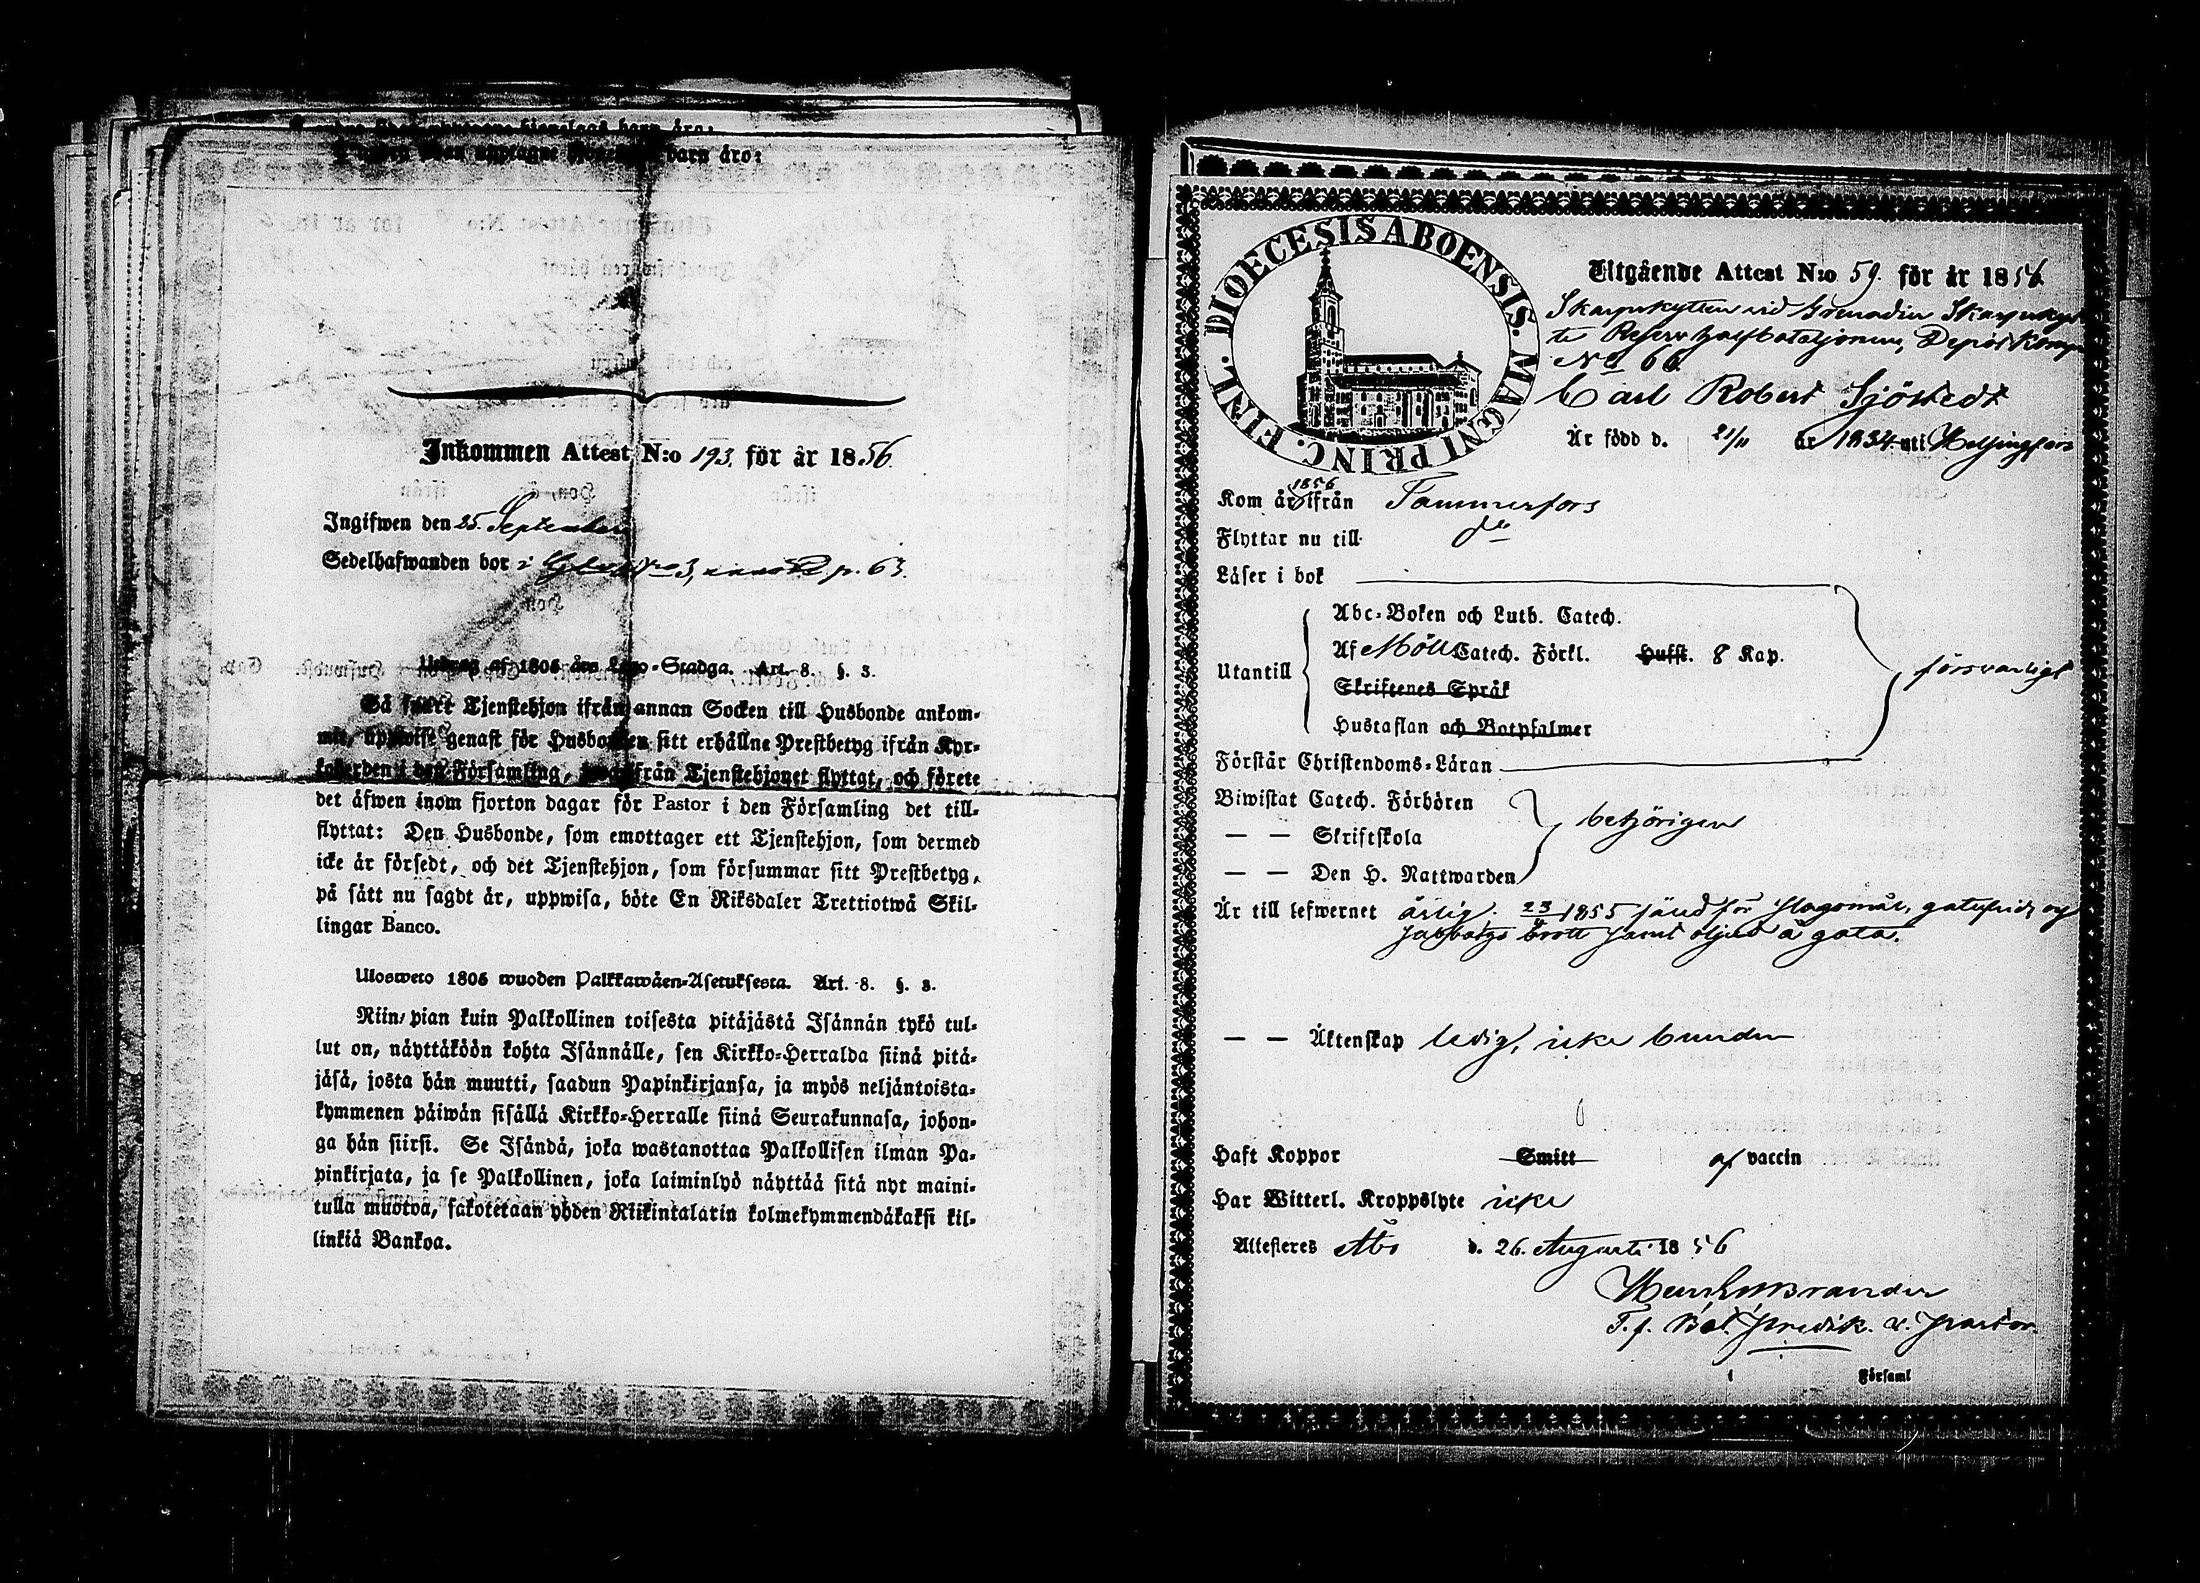 barn äro:
barn äro:
Inkommen Attest N:o 193. för år 1856.
Ingifwen den 25. September
Sedelhafwanden bor i No 3, p. 63.
Utdrag af 1805 års Lego-Stadga. Art. 8. §. 3.
Så snart Tjenstehjon ifrån annan Socken till Husbonde ankom-
mit, uppwise genast för Husbonden sitt erhållne Prestbetyg ifrån Kyr-
koherden i den Församling, ifrån Tjenstehjonet flyttat, och förete
det äfwen inom fjorton dagar för Pastor i den Församling det till-
flyttat: Den Husbonde, som emottager ett Tjenstehjon, som dermed
icke är försedt, och det Tjenstehjon, som försummar sitt Prestbetyg,
på sätt nu sagdt är, uppwisa, böte En Riksdaler Trettiotwå Skil-
lingar Banco.
Ulosweto 1805 wuoden Palkkawäen-Asetuksesta. Art. 8. §. 3.
Niin pian kuin Palkollinen toisesta pitäjästä Isännän tykö tul-
lut on, näyttäköön kohta Isännälle, sen Kirkko-Herralda siinä pitä-
jäsä, josta hän muutti, saadun Papinkirjansa, ja myös neljäntoista-
kymmenen päiwän sisällä Kirkko-Herralle siinä Seurakunnasa, johon-
ga hän siirsi. Se Isändä, joka wastanottaa Palkollisen ilman Pa-
pinkirjata, ja se Palkollinen, joka laiminlyö näyttää sitä nyt maini-
tulla muotoa, sakotetaan yhden Riikintalarin kolmekymmendäkaksi kil-
linkiä Bankoa.
DIOECESIS ABOENSIS. MAGNI PRINC. FINL.
Utgående Attest N:o 59. för år 1856
Skarpskytten vid Grenadier Skarpskyt
te Reserv halfbataljonens, Depôt Komp
No 66
Carl Robert Sjöstedt
Är född d. 21/11 år 1834 uti Helsingfors
Kom år 1856 ifrån Tammerfors
Flyttar nu till do
Läser i bok
Utantill
Abc-Boken och Luth. Catech.
Af Möll Catech. Förkl. Husst. 8 Kap.
Skriftenes Språk
Hustaflan och Botpsalmer
försvarligt
Förstår Christendoms-Läran
Biwistat Catech. Förhören
— — Skriftskola
— — Den H. Nattwarden
behörigen
Är till lefwernet ärlig. 23/4 1855 sakfd för slagsmål, gatufrids og
sabbatgs brott samt oljud å gata.
— — Äktenskap ledig, icke bunden
Haft Koppor Smitt af vaccin
Har Witterl. Kroppslyte icke
Attesteres Åbo d. 26. Augusti 1856
T. f. Bat. Predik. v. Pastor.
i Församl